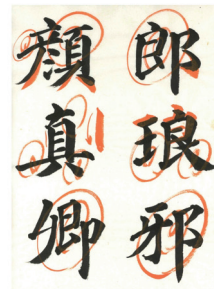 郎琅邪
顔真卿